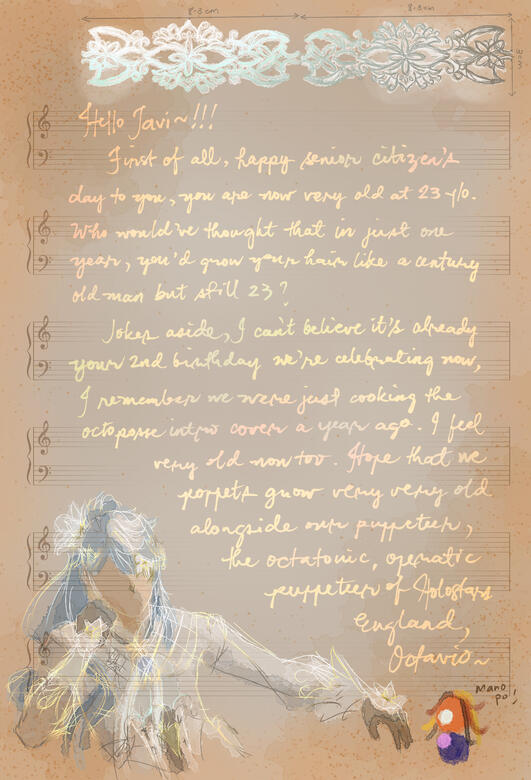 8.3cm 8.3cm
3cm
Hello Javi~!!!
First of all, happy senior citizen's
day to you, you are now very old at 23 y/o.
Who would've thought that in just one
year, you'd grow your hair like a century
old man but still 23?
Jokes aside, I can't believe it's already
your 2nd birthday we're celebrating now,
I remember we were just cooking the
octoposse intro cover a year ago. I feel
very old now too. Hope that we
poppets grow very very old
alongside our puppeteer,
the octatonic, operatic
puppeteer of Holostars
England,
Octavio~
Mano
po!